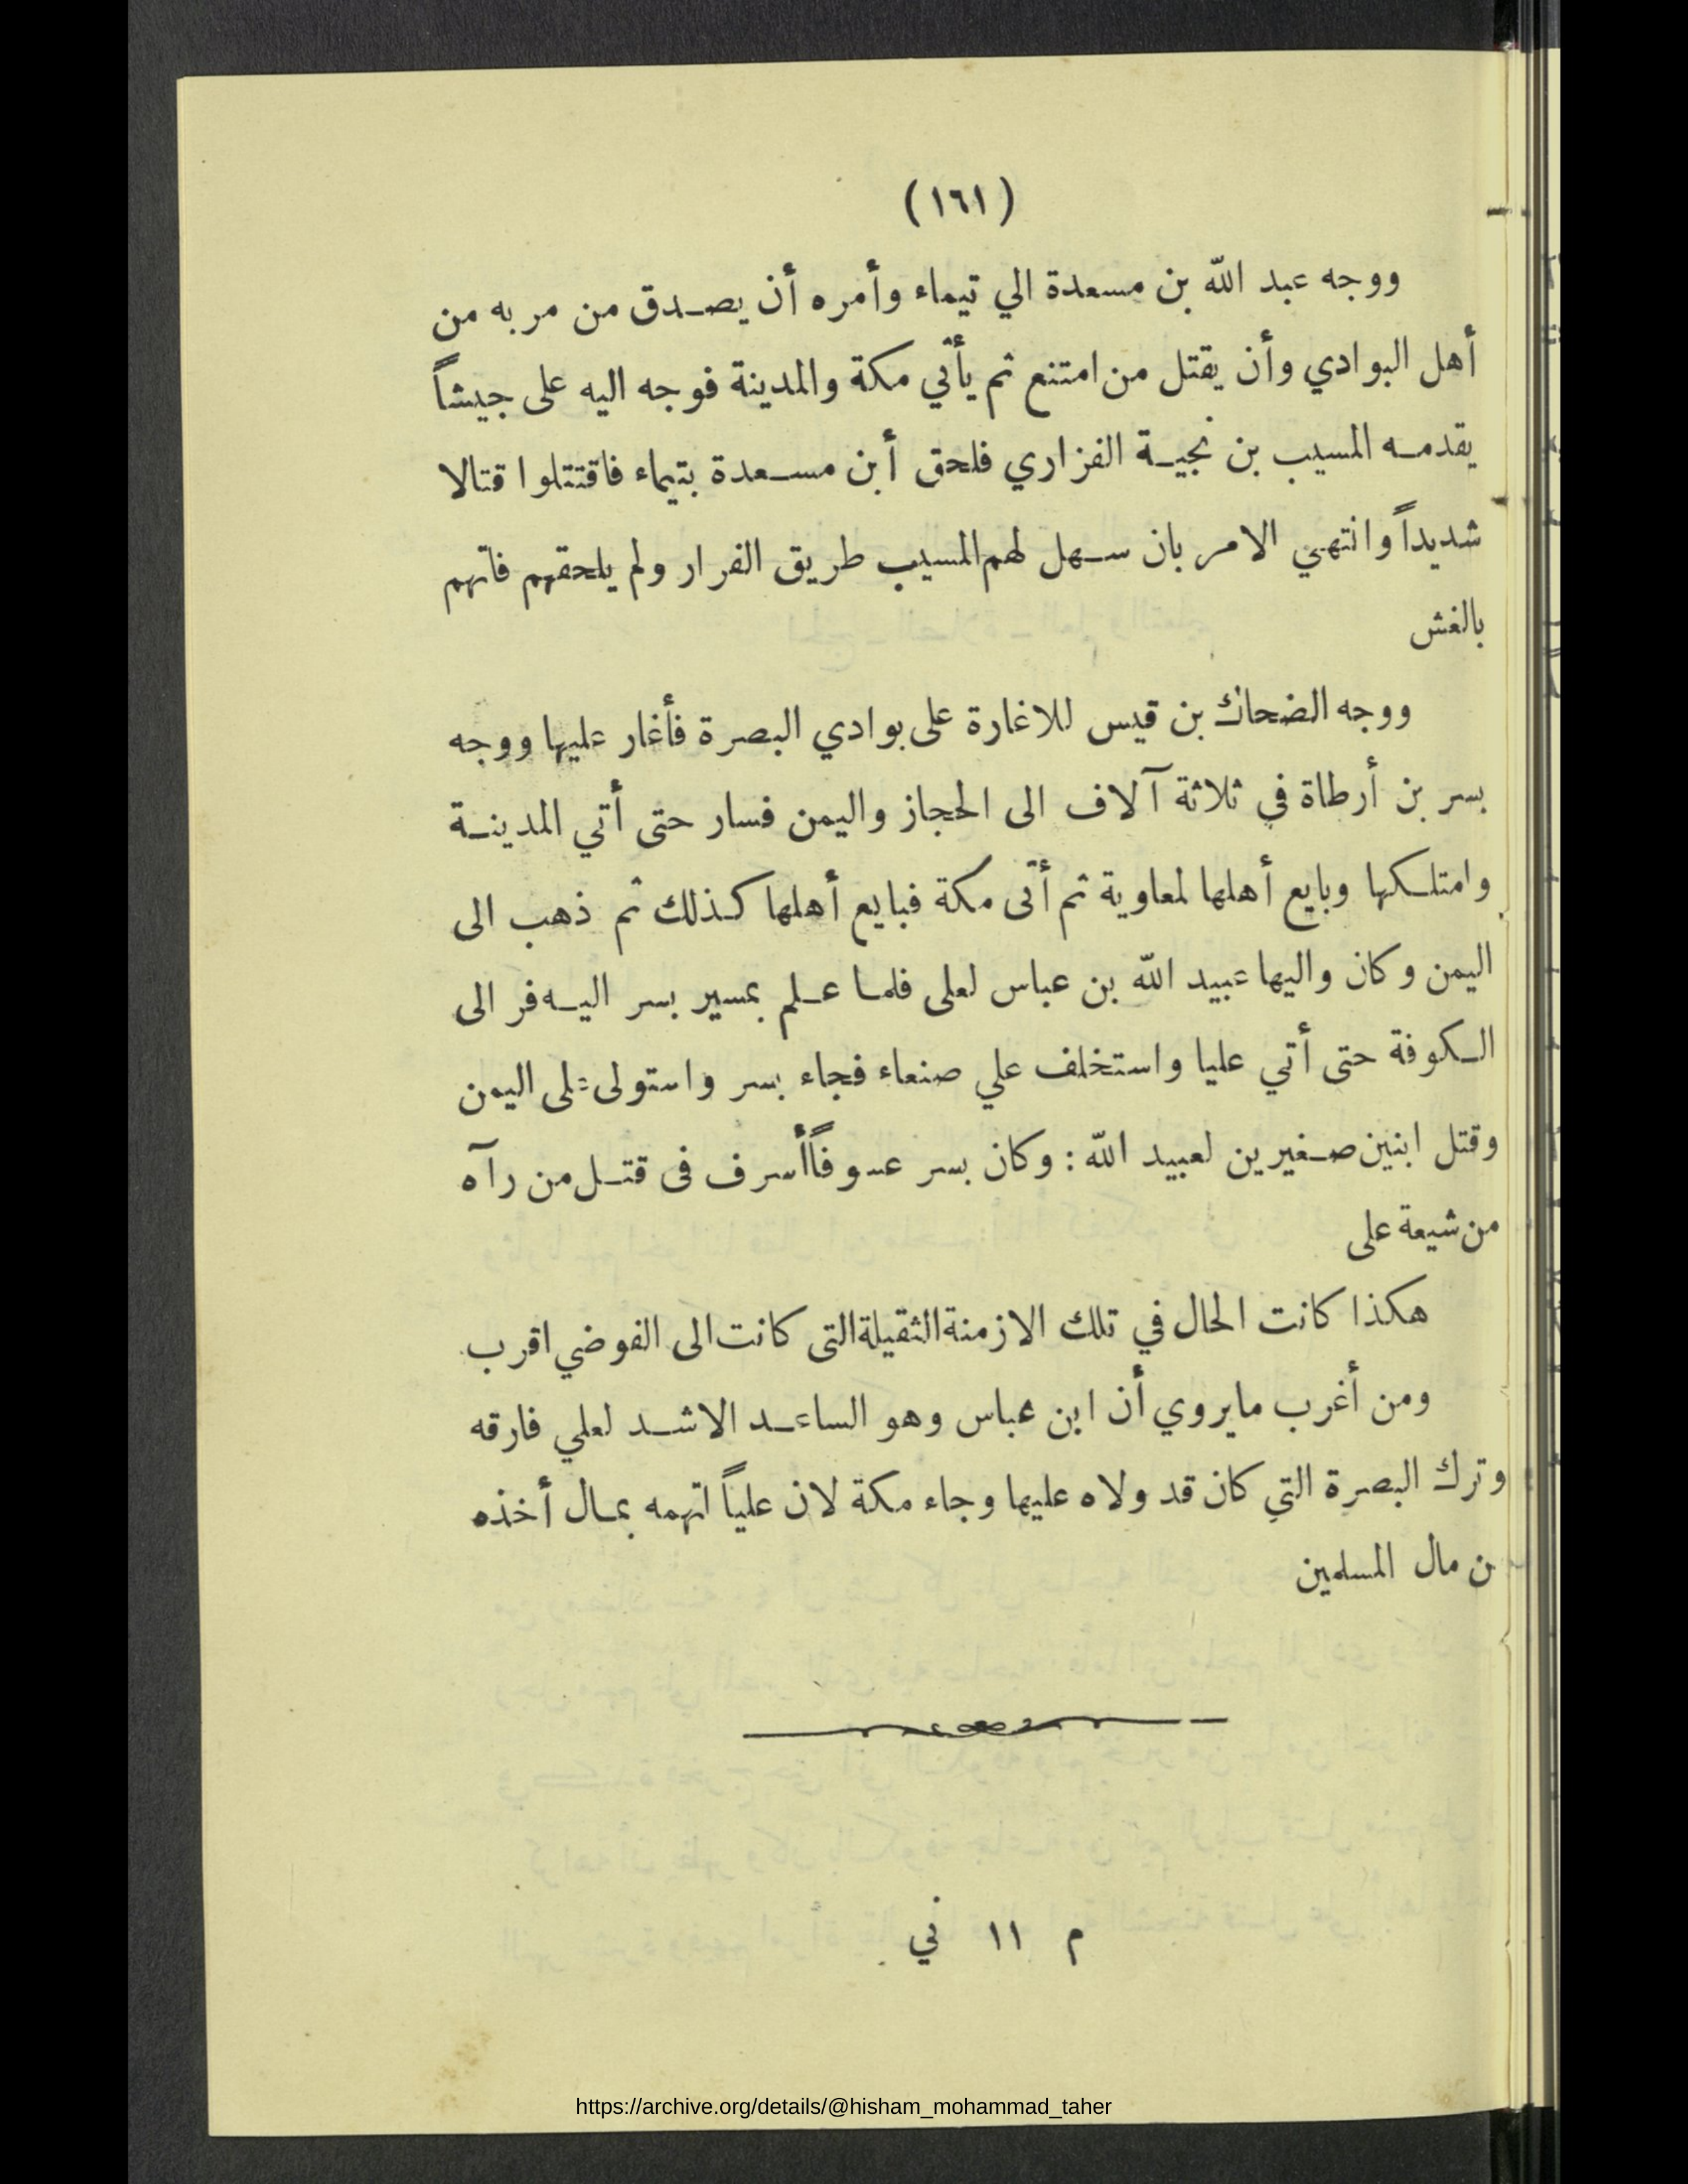 (١٦١)
ووجه عبد الله بن مسعدة الي تيماء وأمره أن يصـدق من مر به من
أهل البوادي وأن يقتل من امتنع ثم يأتي مكة والمدينة فوجه اليه على جيشاً
يقدمـه المسيب بن نجيـة الفزاري فلحق أبن مسـعدة بتيماء فاقتتلوا قتالا
شديداً وانتهي الامر بان سـهل لهم المسيب طريق الفرار ولم يلحقهم فاتهم
بالغش
ووجه الضحاك بن قيس للاغارة على بوادي البصرة فأغار عليها ووجه
بسر بن أرطاة في ثلاثة آلاف الى الحجاز واليمن فسار حتى أتي المدينـة
وامتلـكها وبايع أهلها لمعاوية ثم أتى مكة فبايع أهلها كـذلك ثم ذهب الى
اليمن وكان واليها عبيد الله بن عباس لعلى فلمـا عـلم بمسير بسر اليـه فر الى
الـكوفة حتى أتي عليا واستخلف علي صنعاء فجاء بسر واستولى على اليمن
وقتل ابنين صـغيرين لعبيد الله : وكان بسر عسوفاً أسرف فى قتـل من رآه
من شيعة على
هكذا كانت الحال في تلك الازمنة الثقيلة التى كانت الى الفوضي اقرب
ومن أغرب مايروي أن ابن عباس وهو الساعـد الاشـد لعلي فارقه
وترك البصرة التي كان قد ولاه عليها وجاء مكة لان علياً اتهمه بمـال أخذه
ن مال المسلمين
م ١١ ني
https://archive.org/details/@hisham_mohammad_taher